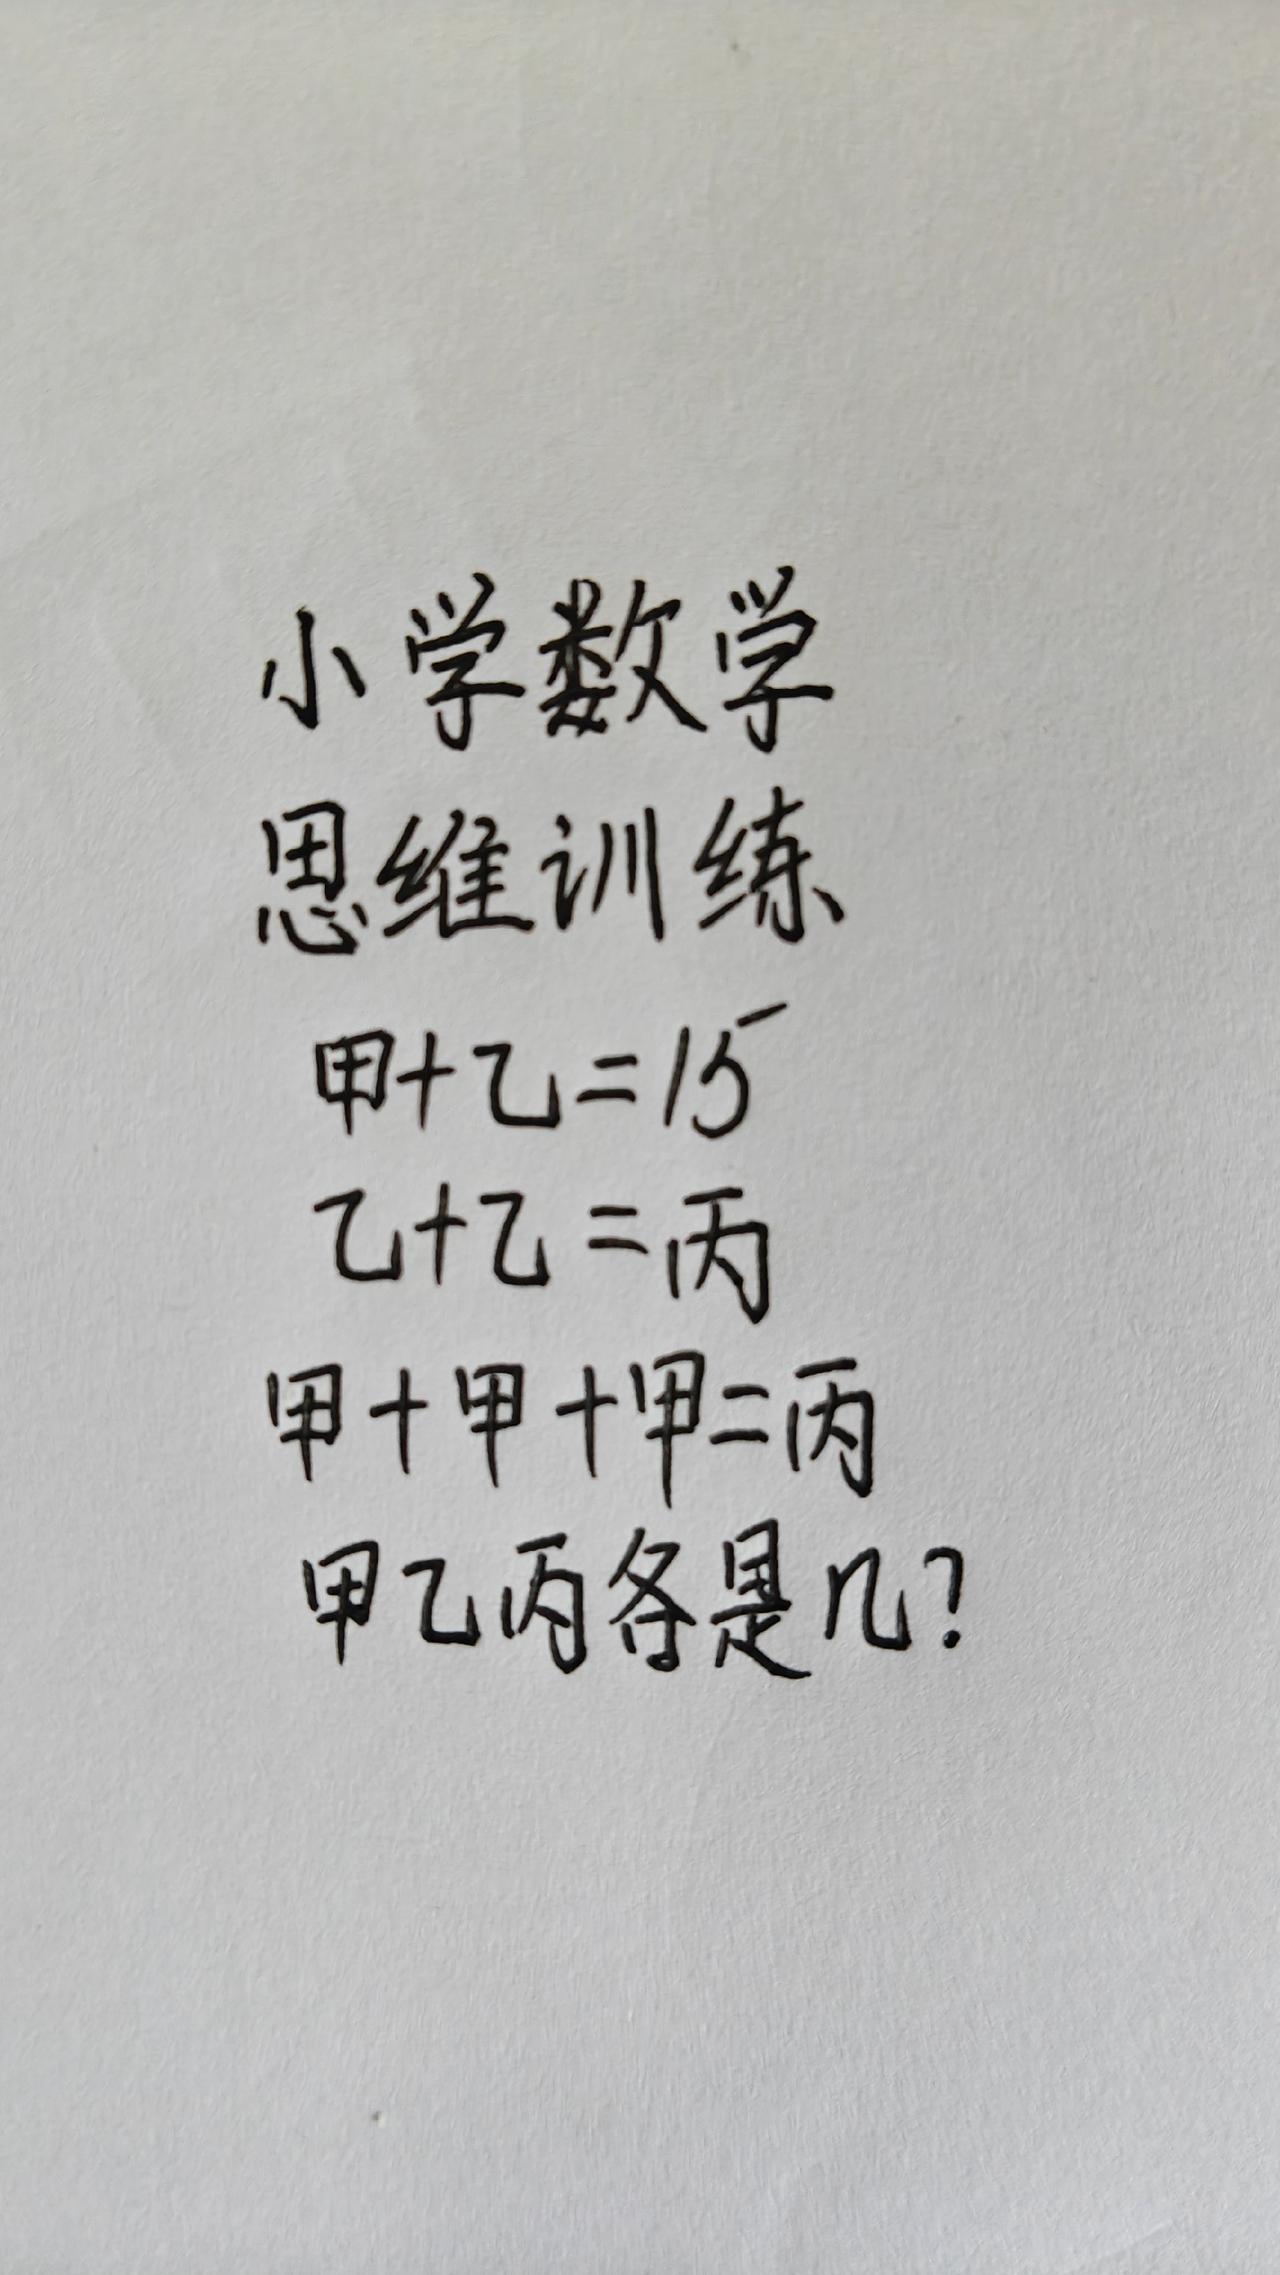 小学数学
思维训练
甲+乙=15
乙+乙=丙
甲+甲+甲=丙
甲乙丙各是几?